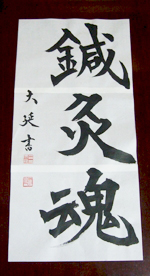 鍼灸魂
大延書